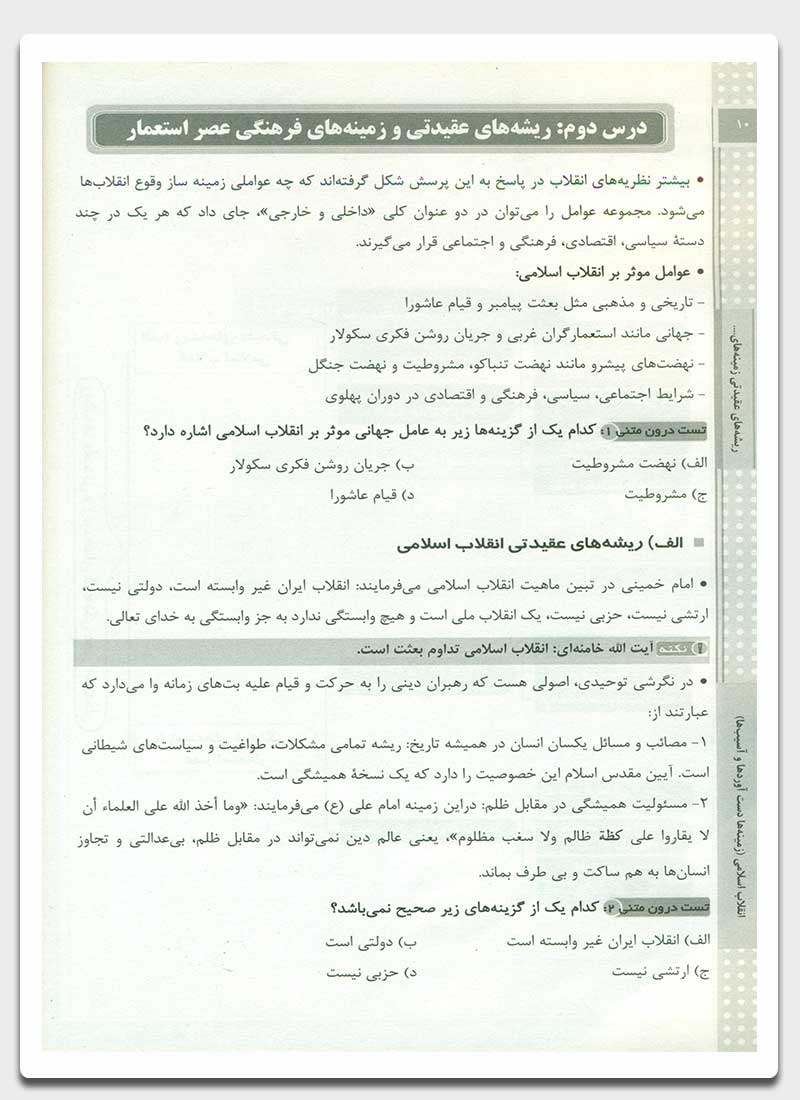 ۱۰
درس دوم: ریشه‌های عقیدتی و زمینه‌های فرهنگی عصر استعمار
• بیشتر نظریه‌های انقلاب در پاسخ به این پرسش شکل گرفته‌اند که چه عواملی زمینه ساز وقوع انقلاب‌ها
می‌شود. مجموعه عوامل را می‌توان در دو عنوان کلی «داخلی و خارجی»، جای داد که هر یک در چند
دستهٔ سیاسی، اقتصادی، فرهنگی و اجتماعی قرار می‌گیرند.
• عوامل موثر بر انقلاب اسلامی:
- تاریخی و مذهبی مثل بعثت پیامبر و قیام عاشورا
- جهانی مانند استعمارگران غربی و جریان روشن فکری سکولار
- نهضت‌های پیشرو مانند نهضت تنباکو، مشروطیت و نهضت جنگل
- شرایط اجتماعی، سیاسی، فرهنگی و اقتصادی در دوران پهلوی
تست درون متنی ۱: کدام یک از گزینه‌ها زیر به عامل جهانی موثر بر انقلاب اسلامی اشاره دارد؟
الف) نهضت مشروطیت ب) جریان روشن فکری سکولار
ج) مشروطیت د) قیام عاشورا
الف) ریشه‌های عقیدتی انقلاب اسلامی
• امام خمینی در تبین ماهیت انقلاب اسلامی می‌فرمایند: انقلاب ایران غیر وابسته است، دولتی نیست،
ارتشی نیست، حزبی نیست، یک انقلاب ملی است و هیچ وابستگی ندارد به جز وابستگی به خدای تعالی.
نکته آیت الله خامنه‌ای: انقلاب اسلامی تداوم بعثت است.
• در نگرشی توحیدی، اصولی هست که رهبران دینی را به حرکت و قیام علیه بت‌های زمانه وا می‌دارد که
عبارتند از:
۱- مصائب و مسائل یکسان انسان در همیشه تاریخ: ریشه تمامی مشکلات، طواغیت و سیاست‌های شیطانی
است. آیین مقدس اسلام این خصوصیت را دارد که یک نسخهٔ همیشگی است.
۲- مسئولیت همیشگی در مقابل ظلم: دراین زمینه امام علی (ع) می‌فرمایند: «وما أخذ الله علی العلماء أن
لا یقاروا علی کظة ظالم ولا سغب مظلوم»، یعنی عالم دین نمی‌تواند در مقابل ظلم، بی‌عدالتی و تجاوز
انسان‌ها به هم ساکت و بی طرف بماند.
تست درون متنی ۲: کدام یک از گزینه‌های زیر صحیح نمی‌باشد؟
الف) انقلاب ایران غیر وابسته است ب) دولتی است
ج) ارتشی نیست د) حزبی نیست
ریشه‌های عقیدتی زمینه‌های....
انقلاب اسلامی (زمینه‌ها دست آوردها و آسیب‌ها)